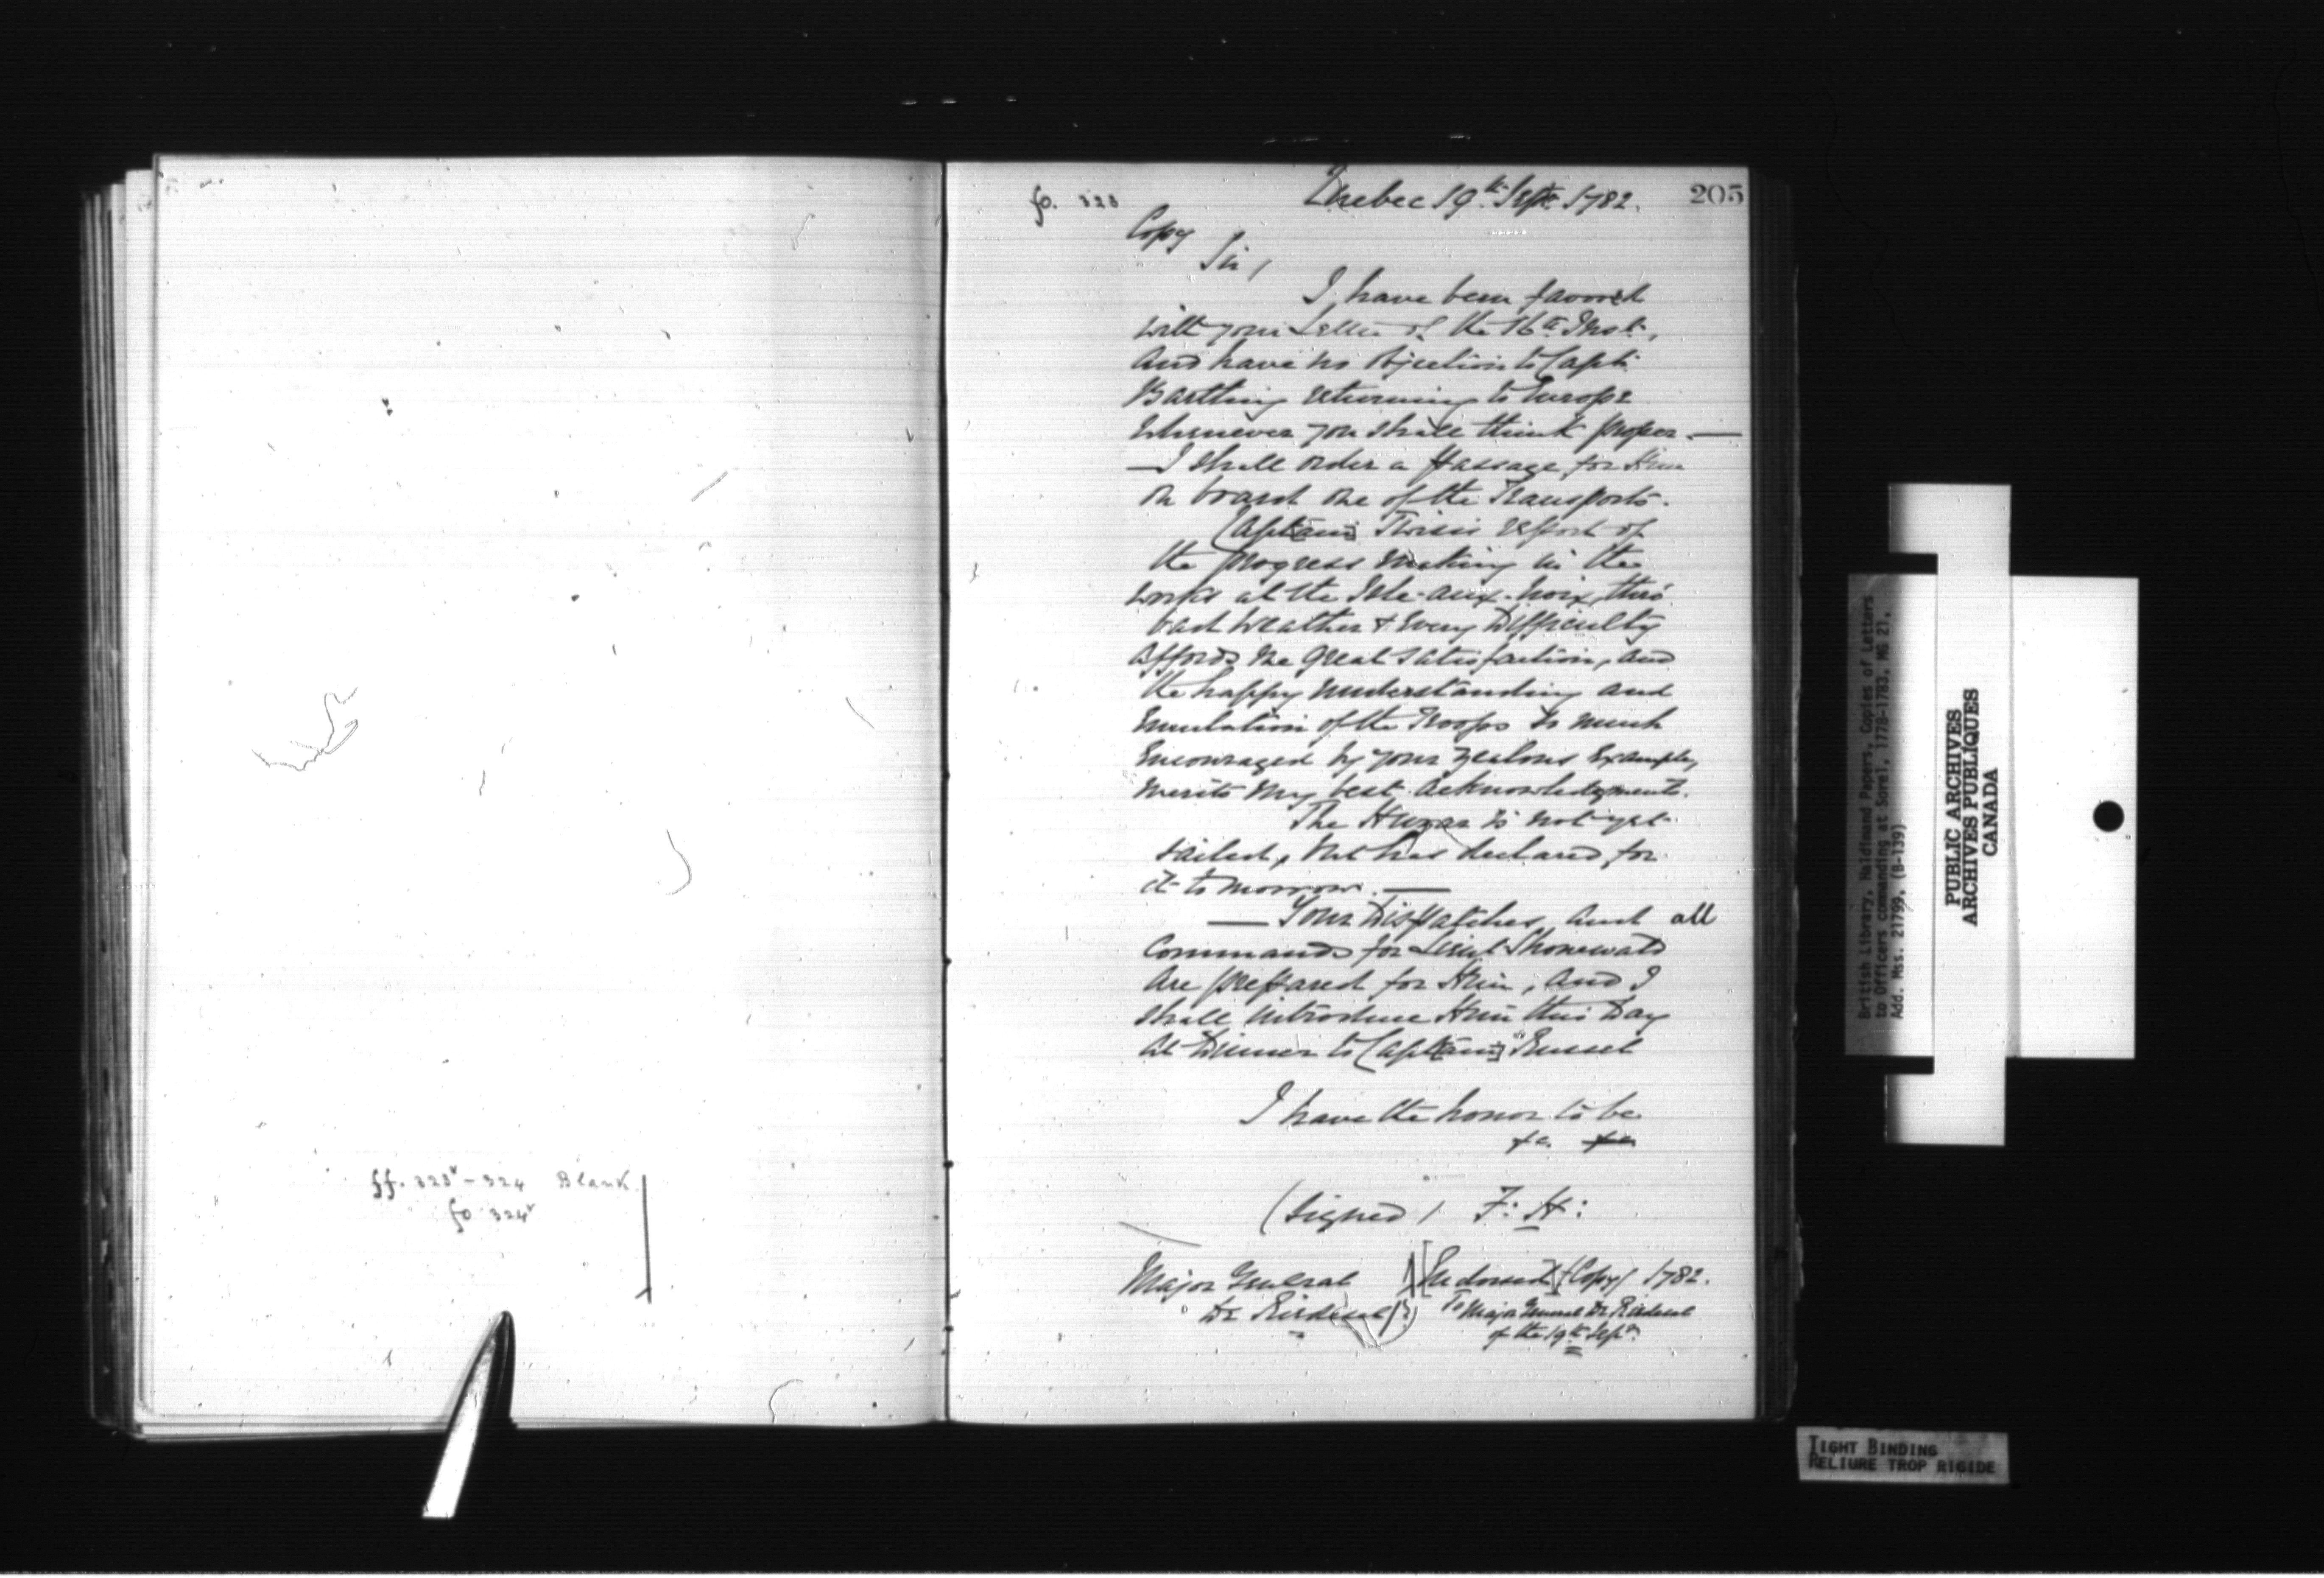 ff. 323v - 324 Blank.
fo 324v
205
fo. 323
Quebec 19th Septr 1782.
Copy
Sir/
I have been favored
with your Letter of the 16th Inst.,
and have no Objection to Capt.
Bartling returning to Europe
whenever you shall think proper. —
— I shall order a Passage for Him
on board one of the Transports.
Capt[ain] Twiss's report of
the progress making in the
works at the Isle-aux-noix, thro'
bad weather & Every Difficulty
affords me great satisfaction, and
the happy understanding and
Emulation of the Troops so much
Encouraged by your zealous Example,
merits my best acknowledgments.
The Huzar is not yet
sailed, but has declared for
it to morrow. —
— Your Dispatches, and all
Commands for Lieut Shonewald
are prepared for Him, and I
shall introduce Him this Day
at Dinner to Capt[ain] Russel
I have the honor to be
&c. &c.
(Signed) F: H:
Major General
De Riedesel
[Endorsed] (Copy) 1782.
To Major General De Riedesel
of the 19th Septr.
British Library, Haldimand Papers, Copies of Letters
to Officers commanding at Sorel, 1778-1783, MG 21,
Add. Mss. 21799, (B-139)
PUBLIC ARCHIVES
ARCHIVES PUBLIQUES
CANADA
TIGHT BINDING
RELIURE TROP RIGIDE